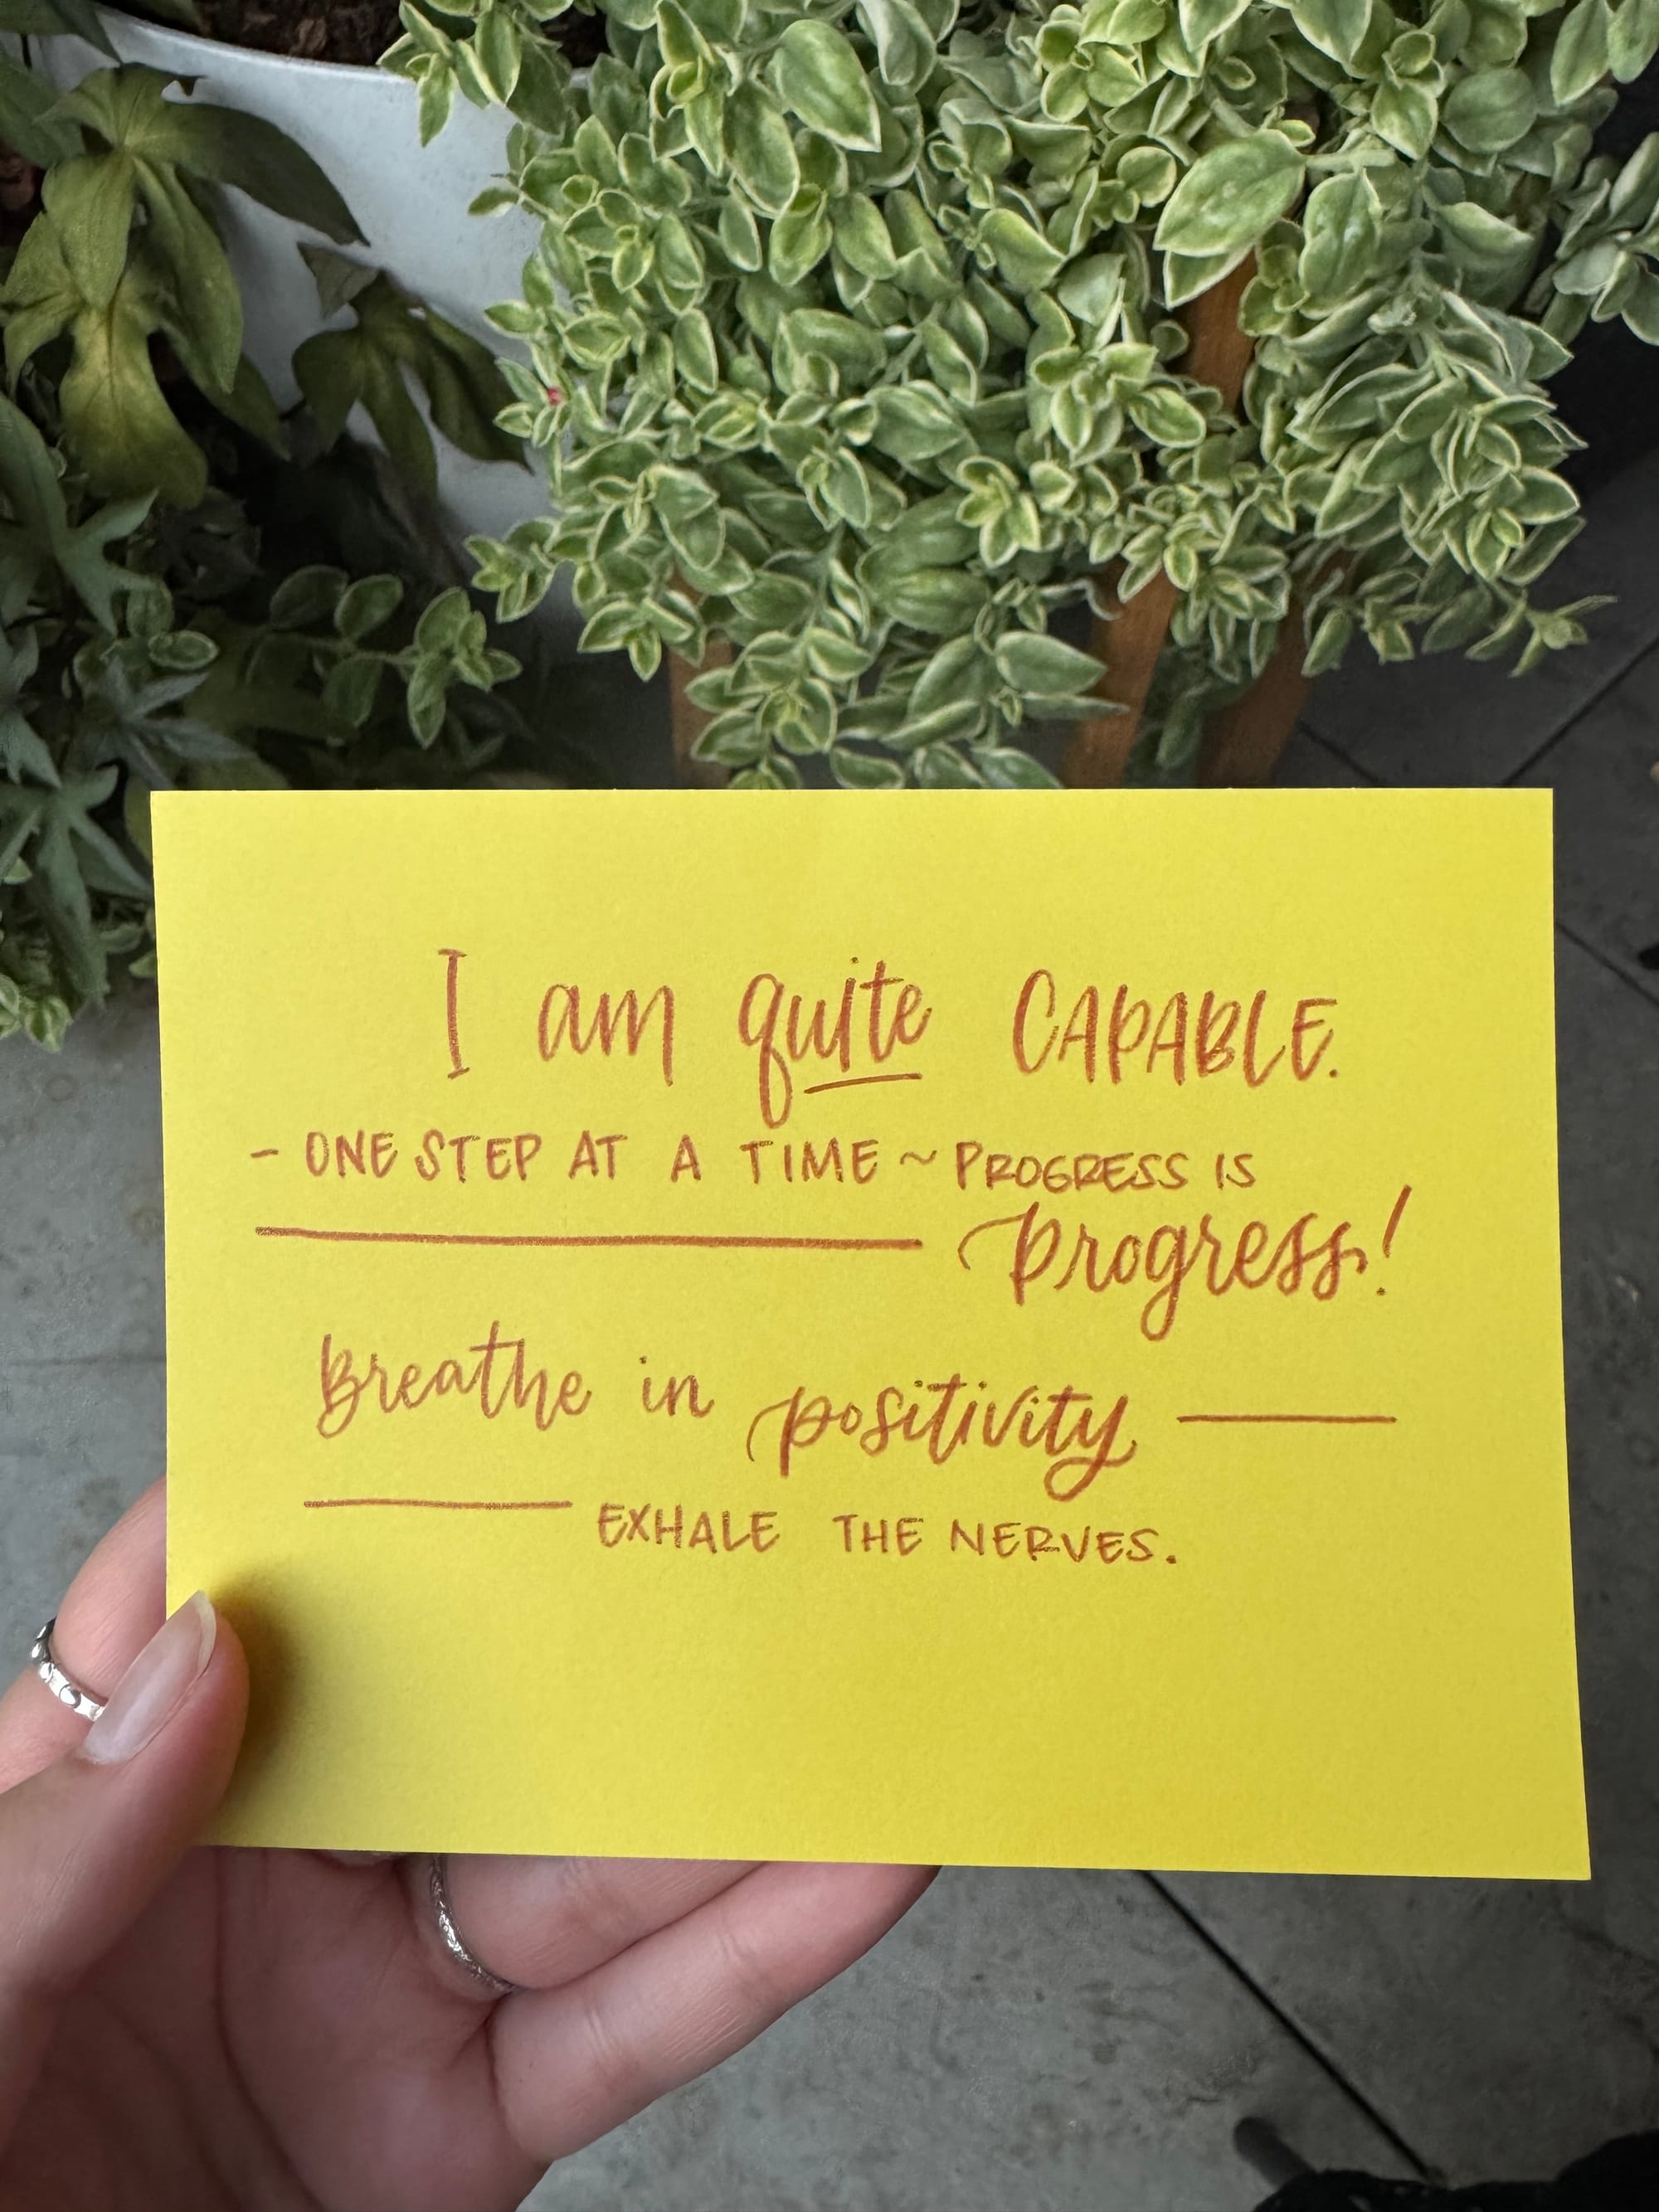 I am quite CAPABLE.
- ONE STEP AT A TIME ~ PROGRESS IS
progress!
Breathe in positivity
EXHALE THE NERVES.